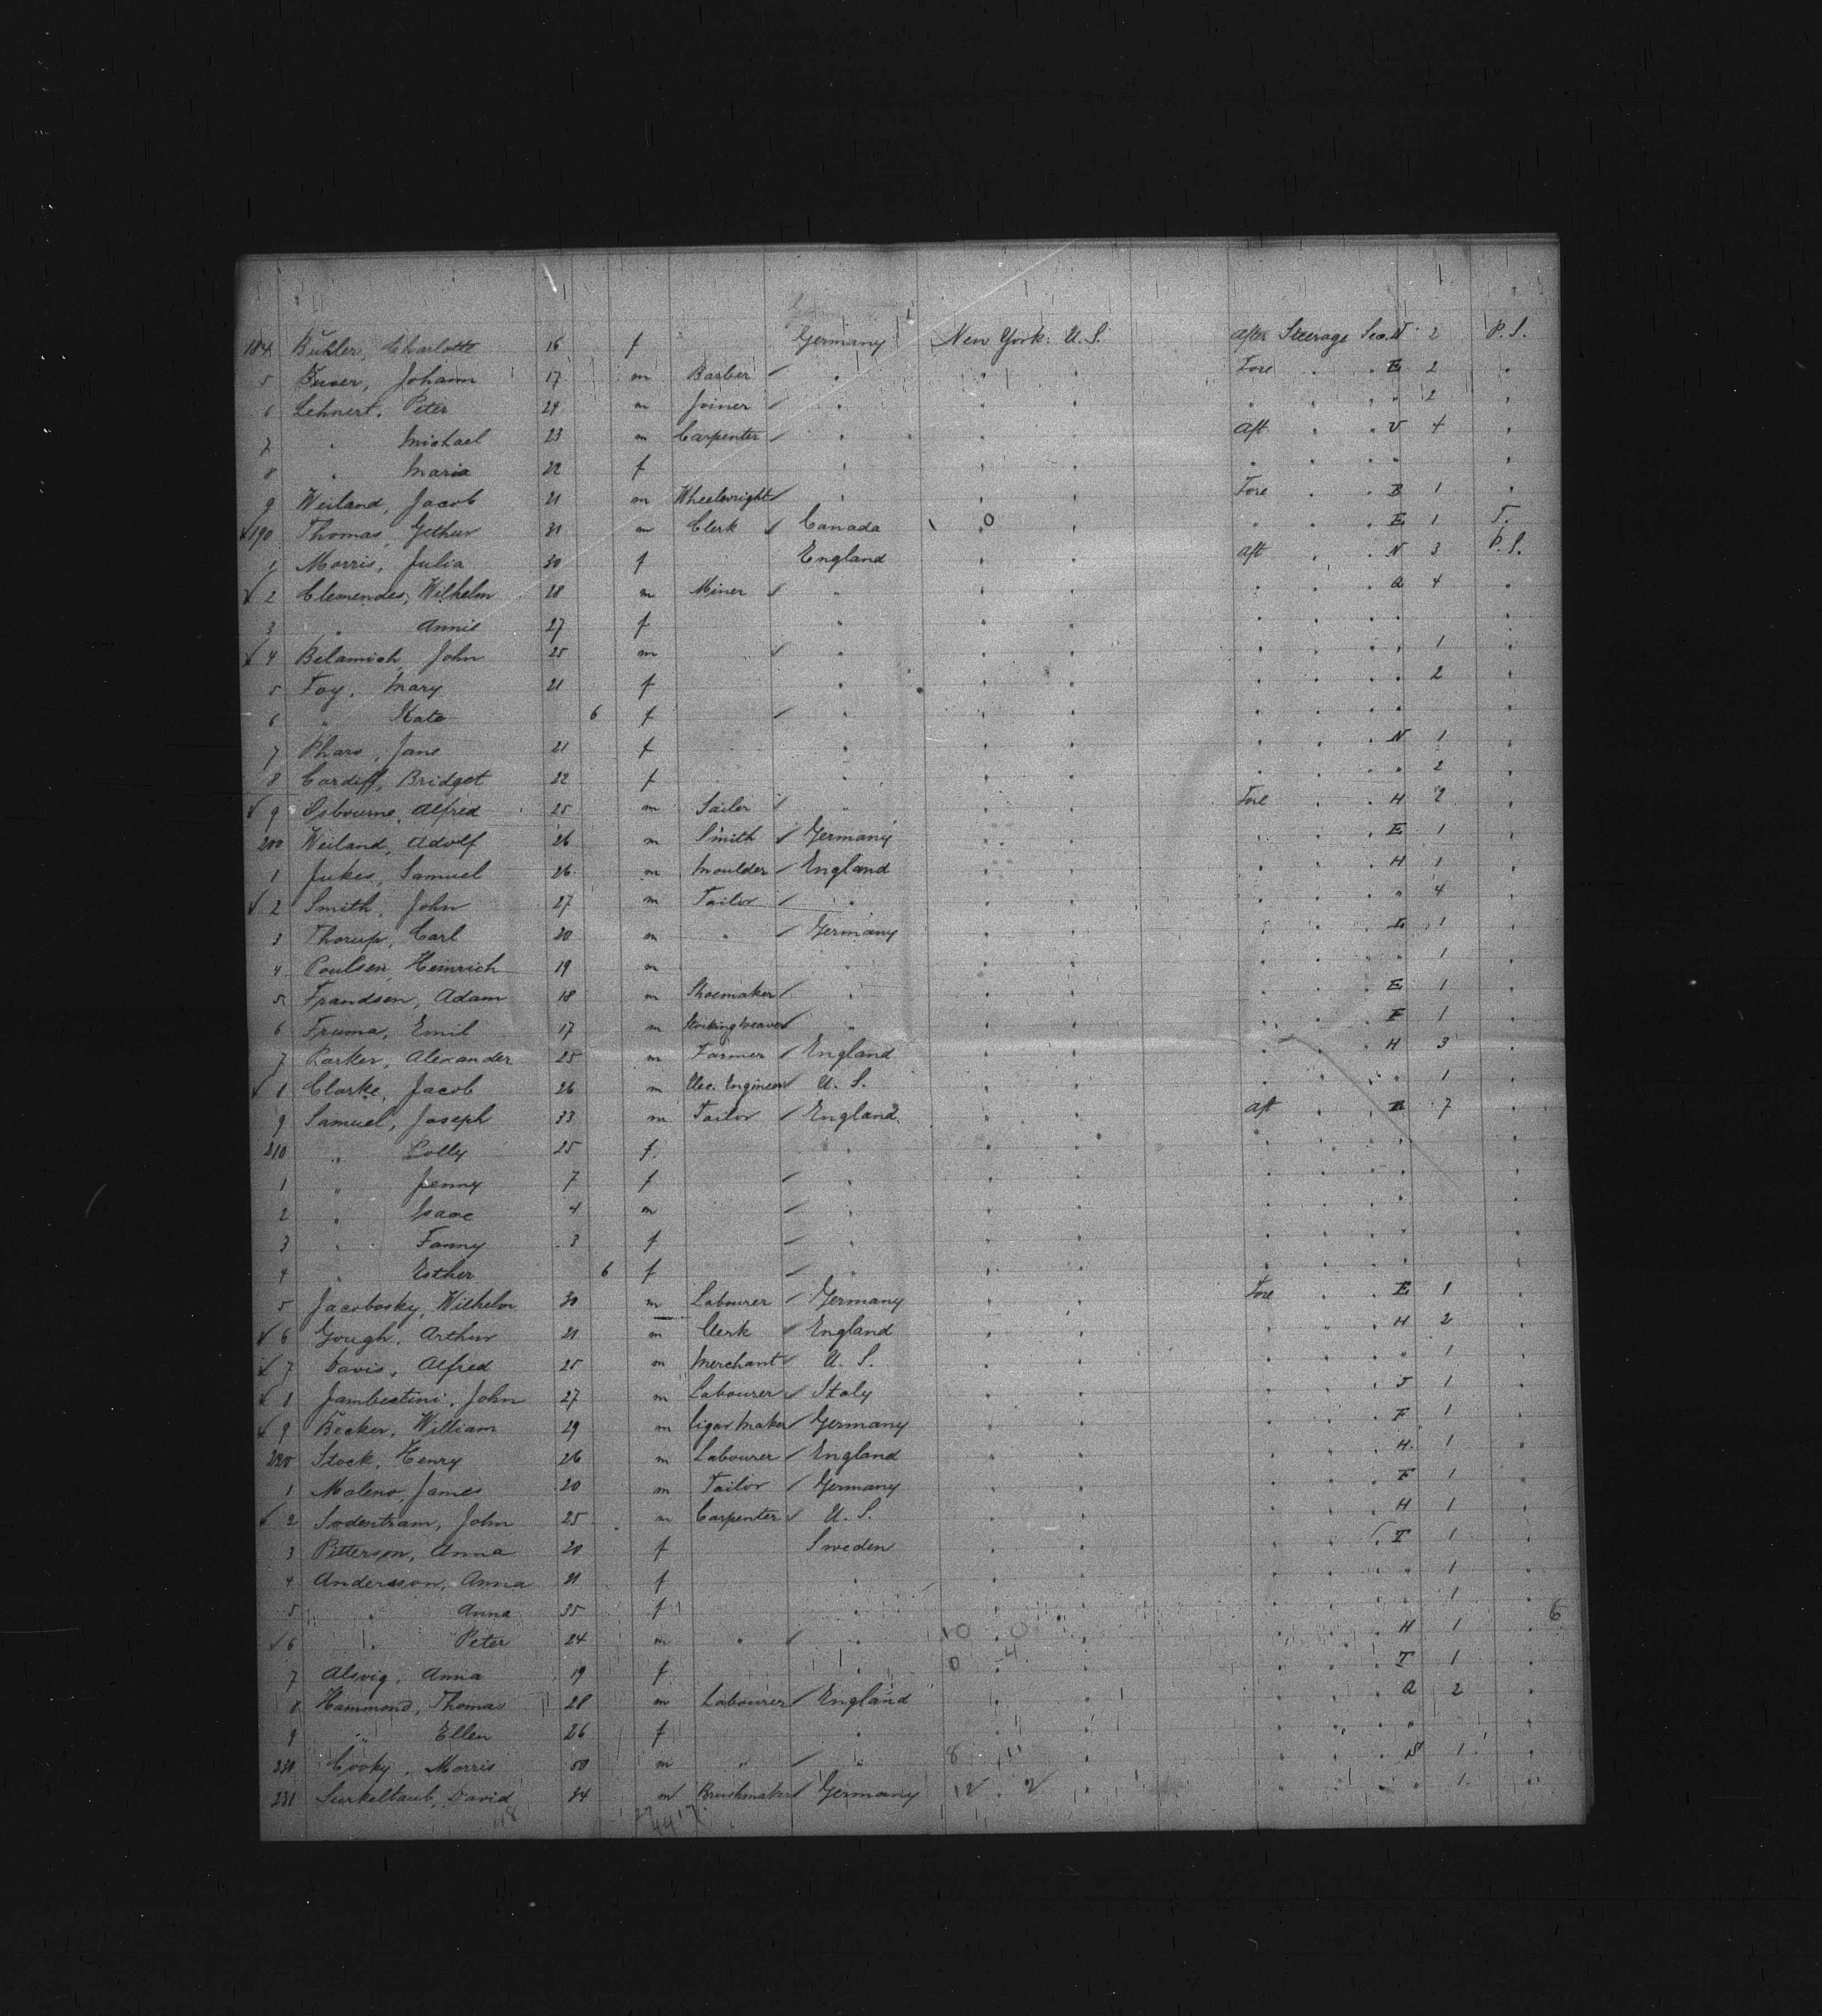 184 Bühler, Charlotte 16 f " Germany New York. U.S. after Steerage Sec. N 2 P.S.
5 Johann 17 m Barber / " " " Fore " " E 2 "
6 Lehnert, Peter 24 m Joiner / " " " " " " " 2 "
7 " Michael 23 m Carpenter / " " " Aft " " V 4 "
8 " Maria 22 f " " " " " " " "
9 Weiland, Jacob 21 m Wheelwright / " " " Fore " " B 1 "
190 Thomas, Gethur 31 m Clerk / Canada \ 0 " " " " E 1 T.
1 Morris, Julia 30 f England " " Aft " " N 3 P.S.
2 Clemendes, Wilhelm 28 m Miner / " " " " " " A 4 "
3 " Annie 27 f " " " " " " " "
4 Belamich, John 25 m / " " " " " " " 1 "
5 Foy, Mary 21 f " " " " " " " 2 "
6 " Kate 6 f / " " " " " " " "
7 Phars, Jane 21 f " " " " " " N 1 "
8 Cardiff, Bridget 22 f " " " " " " " 2 "
9 Osbourne, Alfred 25 m Sailor / " " " Fore " " H 2 "
200 Weiland, Adolf 26 m Smith / Germany " " " " " E 1 "
1 Jukes, Samuel 26 m Moulder / England " " " " " H 1 "
2 Smith, John 27 m Tailor / " " " " " " " 4 "
3 Thorup, Carl 20 m " / Germany " " " " " E 1 "
4 Poulsen, Heinrich 19 m " " " " " " " 1 "
5 Frandsen, Adam 18 m Shoemaker / " " " " " " E 1 "
6 Truma, Emil 17 m Stocking weaver / " " " " " " F 1 "
7 Parker, Alexander 25 m Farmer / England " " " " " H 3 "
8 Clarke, Jacob 26 m Elec. Engineer / U.S. " " " " " " 1 "
9 Samuel, Joseph 33 m Tailor / England " " Aft " " B 7 "
210 " Lolly 25 f " " " " " " " "
1 " Jenny 7 f / " " " " " " " "
2 " Isaac 4 m / " " " " " " " "
3 " Fanny 3 f / " " " " " " " "
4 " Esther 6 f / " " " " " " " "
5 Jacobosky, Wilhelm 30 m Labourer / Germany " " Fore " " E 1 "
6 Gough, Arthur 21 m Clerk / England " " " " " H 2 "
7 Davis, Alfred 25 m Merchant / U.S. " " " " " " 1 "
8 Jambestini, John 27 m Labourer / Italy " " " " " J 1 "
9 Becker, William 29 m Cigar maker / Germany " " " " " F 1 "
220 Stock, Henry 26 m Labourer / England " " " " " H 1 "
1 Maleno, James 20 m Tailor / Germany " " " " " F 1 "
2 Sodentram, John 25 m Carpenter / U.S. " " " " " H 1 "
3 Pitterson, Anna 20 f Sweden " " " " " T 1 "
4 Andersson, Anna 21 f " " " " " " " 1 "
5 " Anna 35 f " " " " " " " 1 " 6
6 " Peter 24 m " / " 10 0 " " " " H 1 "
7 Alsvig, Anna 19 f " 0 4 " " " " T 1 "
8 Hammond, Thomas 28 m Labourer / England " " " " " A 2 "
9 " Ellen 26 f " " " " " " " "
230 Cooky, Morris 50 m " / " 8 11 " " " " S 1 "
231 Surkeltaub, David 34 m Brushmaker / Germany 12 2 " " " " " 1 "
48 27 44 17